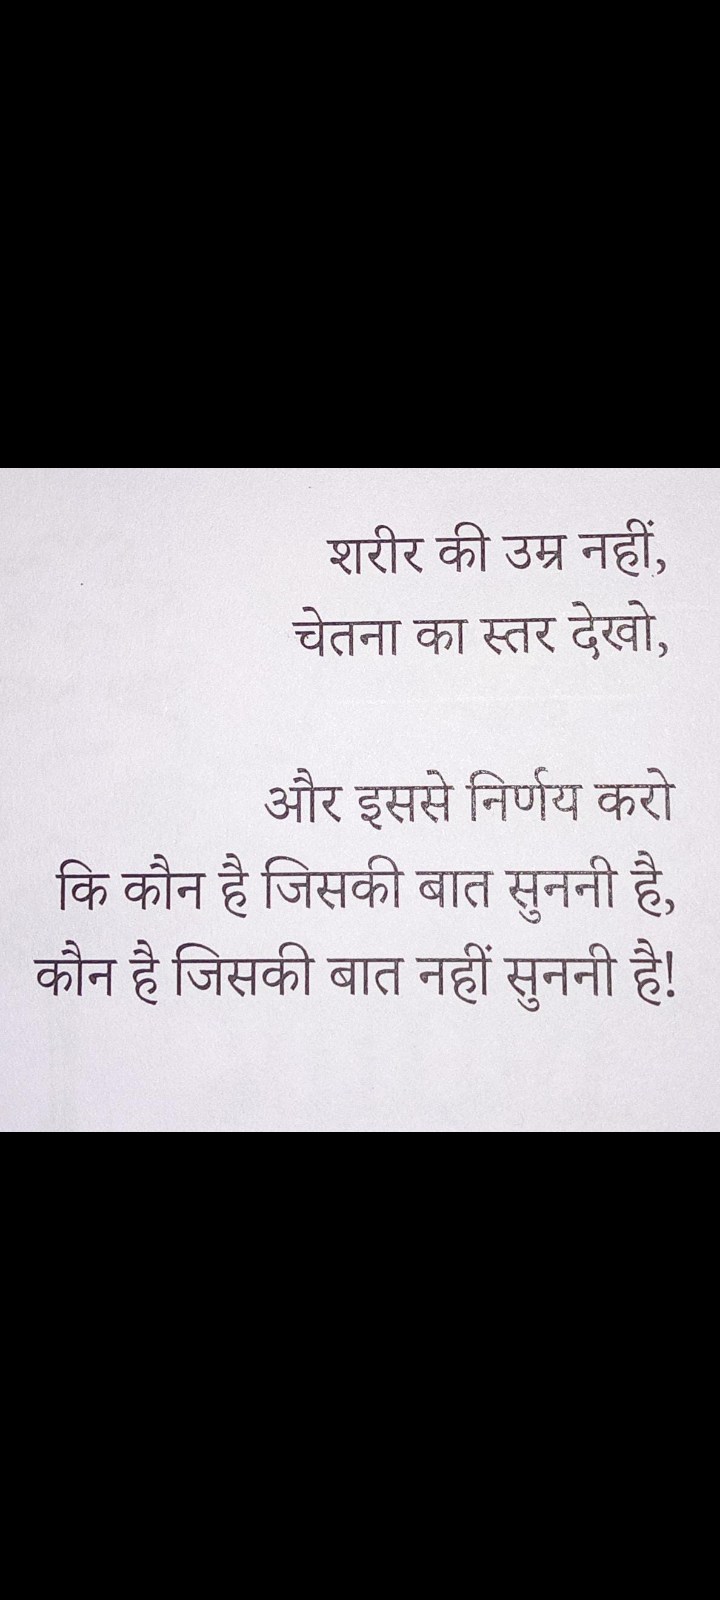 शरीर की उम्र नहीं,
चेतना का स्तर देखो,
और इससे निर्णय करो
कि कौन है जिसकी बात सुननी है,
कौन है जिसकी बात नहीं सुननी है!